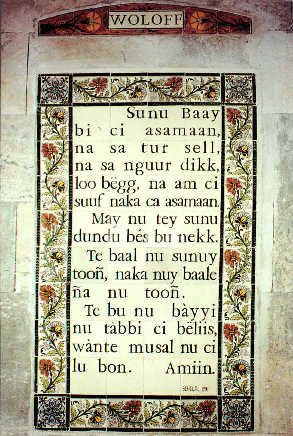 WOLOFF
Sunu Baay
bi ci asamaan,
na sa tur sell,
na sa nguur dikk,
loo bëgg, na am ci
suuf naka ca asamaan.
May nu tey sunu
dundu bés bu nekk.
Te baal nu sunuy
tooñ, naka nuy baale
ña nu tooñ.
Te bu nu bàyyi
nu tàbbi ci bëliis,
wànte musal nu ci
lu bon. Amiin.